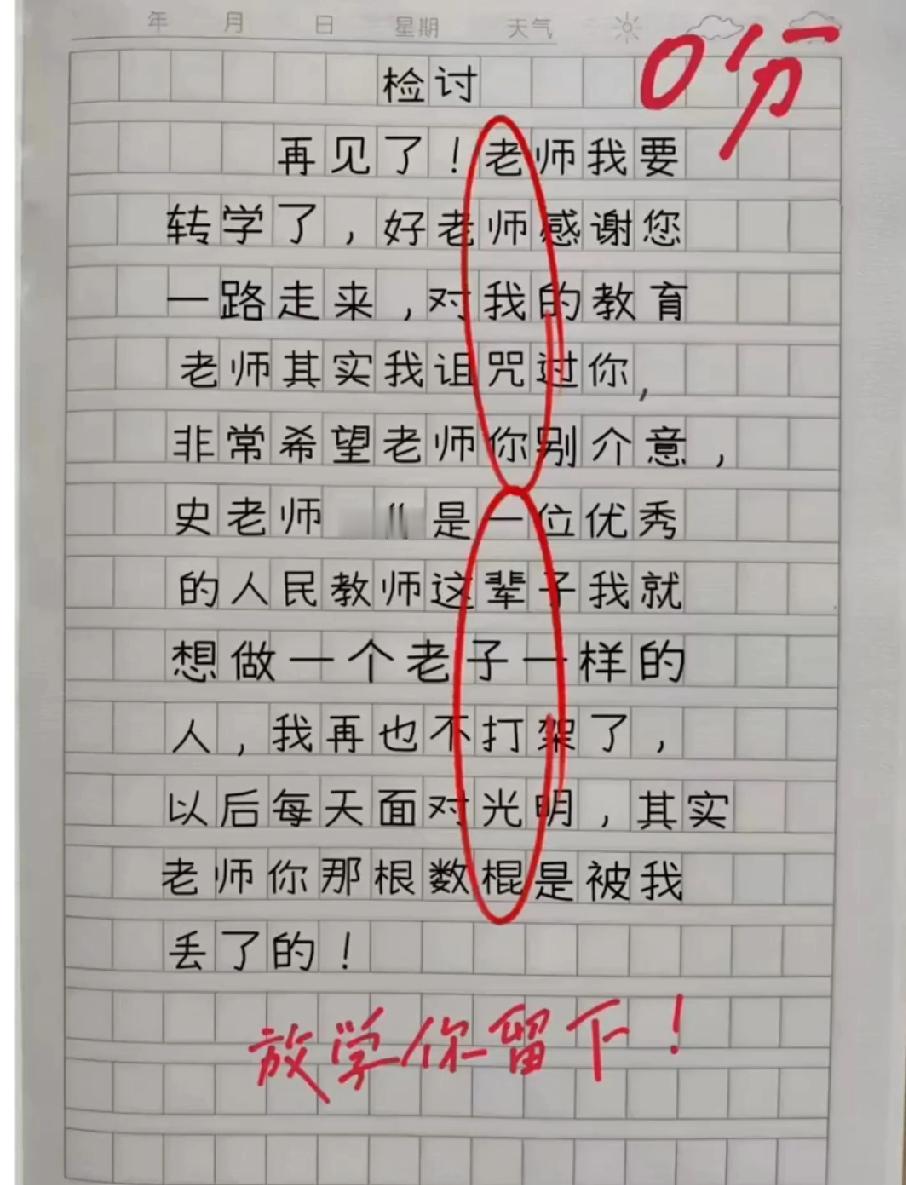 年 月 日 星期 天气
0分
检讨
再见了！老师我要
转学了，好老师感谢您
一路走来，对我的教育
老师其实我诅咒过你，
非常希望老师你别介意，
史老师 是一位优秀
的人民教师这辈子我就
想做一个老子一样的
人，我再也不打架了，
以后每天面对光明，其实
老师你那根数棍是被我
丢了的！
放学你留下！